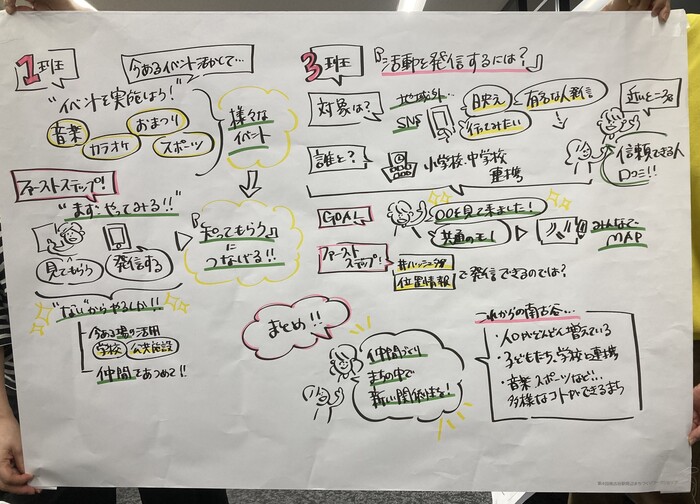 1班
今あるイベント活かして…
"イベントを実施しよう!
音楽
おまつり
カラオケ
スポーツ
様々な
イベント
ファーストステップ!
"まず、やってみる!!"
見てもらう
発信する
『知ってもらう』
につなげる!!
"ない"からやるしか!!
今ある場の活用
学校
公共施設
仲間であつめて!!
3班
『活動を発信するには?』
対象は?
地域外…
SNS
映え
行ってみたい
有名な人発信
近いところは
信頼できる人
口コミ!!
誰と?
小学校、中学校
連携
GOAL
〇〇を見て来ました!
共通のモノ
みんなで
MAP
ファースト
ステップ!
#ハッシュタグ
位置情報
で発信できるのでは?
まとめ!!
仲間づくり
まちの中で
新しい関係性を!
これからの南古谷…
・人口がどんどん増えている
・子どもたち、学校と連携
・音楽 スポーツなど…
多様なコトができるまち